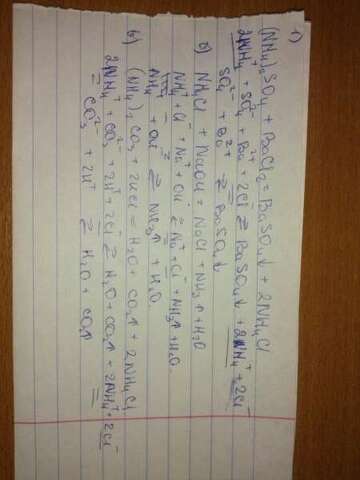 1)
(NH₄)₂SO₄ + BaCl₂ = BaSO₄↓ + 2NH₄Cl
2NH₄⁺ + SO₄²⁻ + Ba²⁺ + 2Cl⁻ ⇄ BaSO₄↓ + 2NH₄⁺ + 2Cl⁻
SO₄²⁻ + Ba²⁺ ⇄ BaSO₄↓
б) NH₄Cl + NaOH = NaCl + NH₃↑ + H₂O
NH₄⁺ + Cl⁻ + Na⁺ + OH⁻ ⇄ Na⁺ + Cl⁻ + NH₃↑ + H₂O
NH₄⁺ + OH⁻ ⇄ NH₃↑ + H₂O
в) (NH₄)₂CO₃ + 2HCl = H₂O + CO₂↑ + 2NH₄Cl
2NH₄⁺ + CO₃²⁻ + 2H⁺ + 2Cl⁻ ⇄ H₂O + CO₂↑ + 2NH₄⁺ + 2Cl⁻
CO₃²⁻ + 2H⁺ ⇄ H₂O + CO₂↑